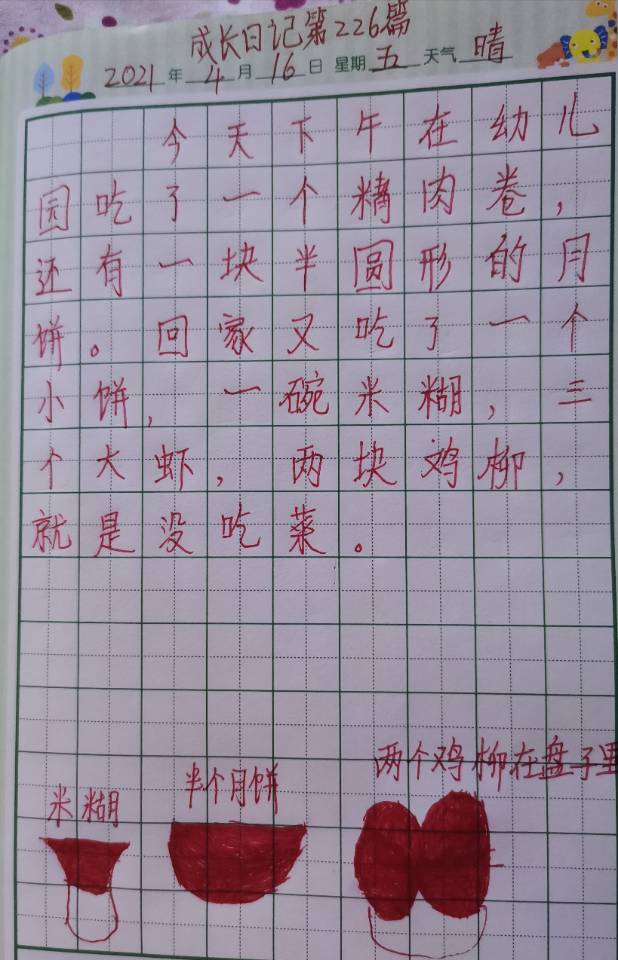 成长日记第226篇
2021年4月16日 星期五 天气晴
今天下午在幼儿
园吃了一个精肉卷，
还有一块半圆形的月
饼。回家又吃了一个
小饼，一碗米糊，三
个大虾，两块鸡柳，
就是没吃菜。
米糊
半个月饼
两个鸡柳在盘子里